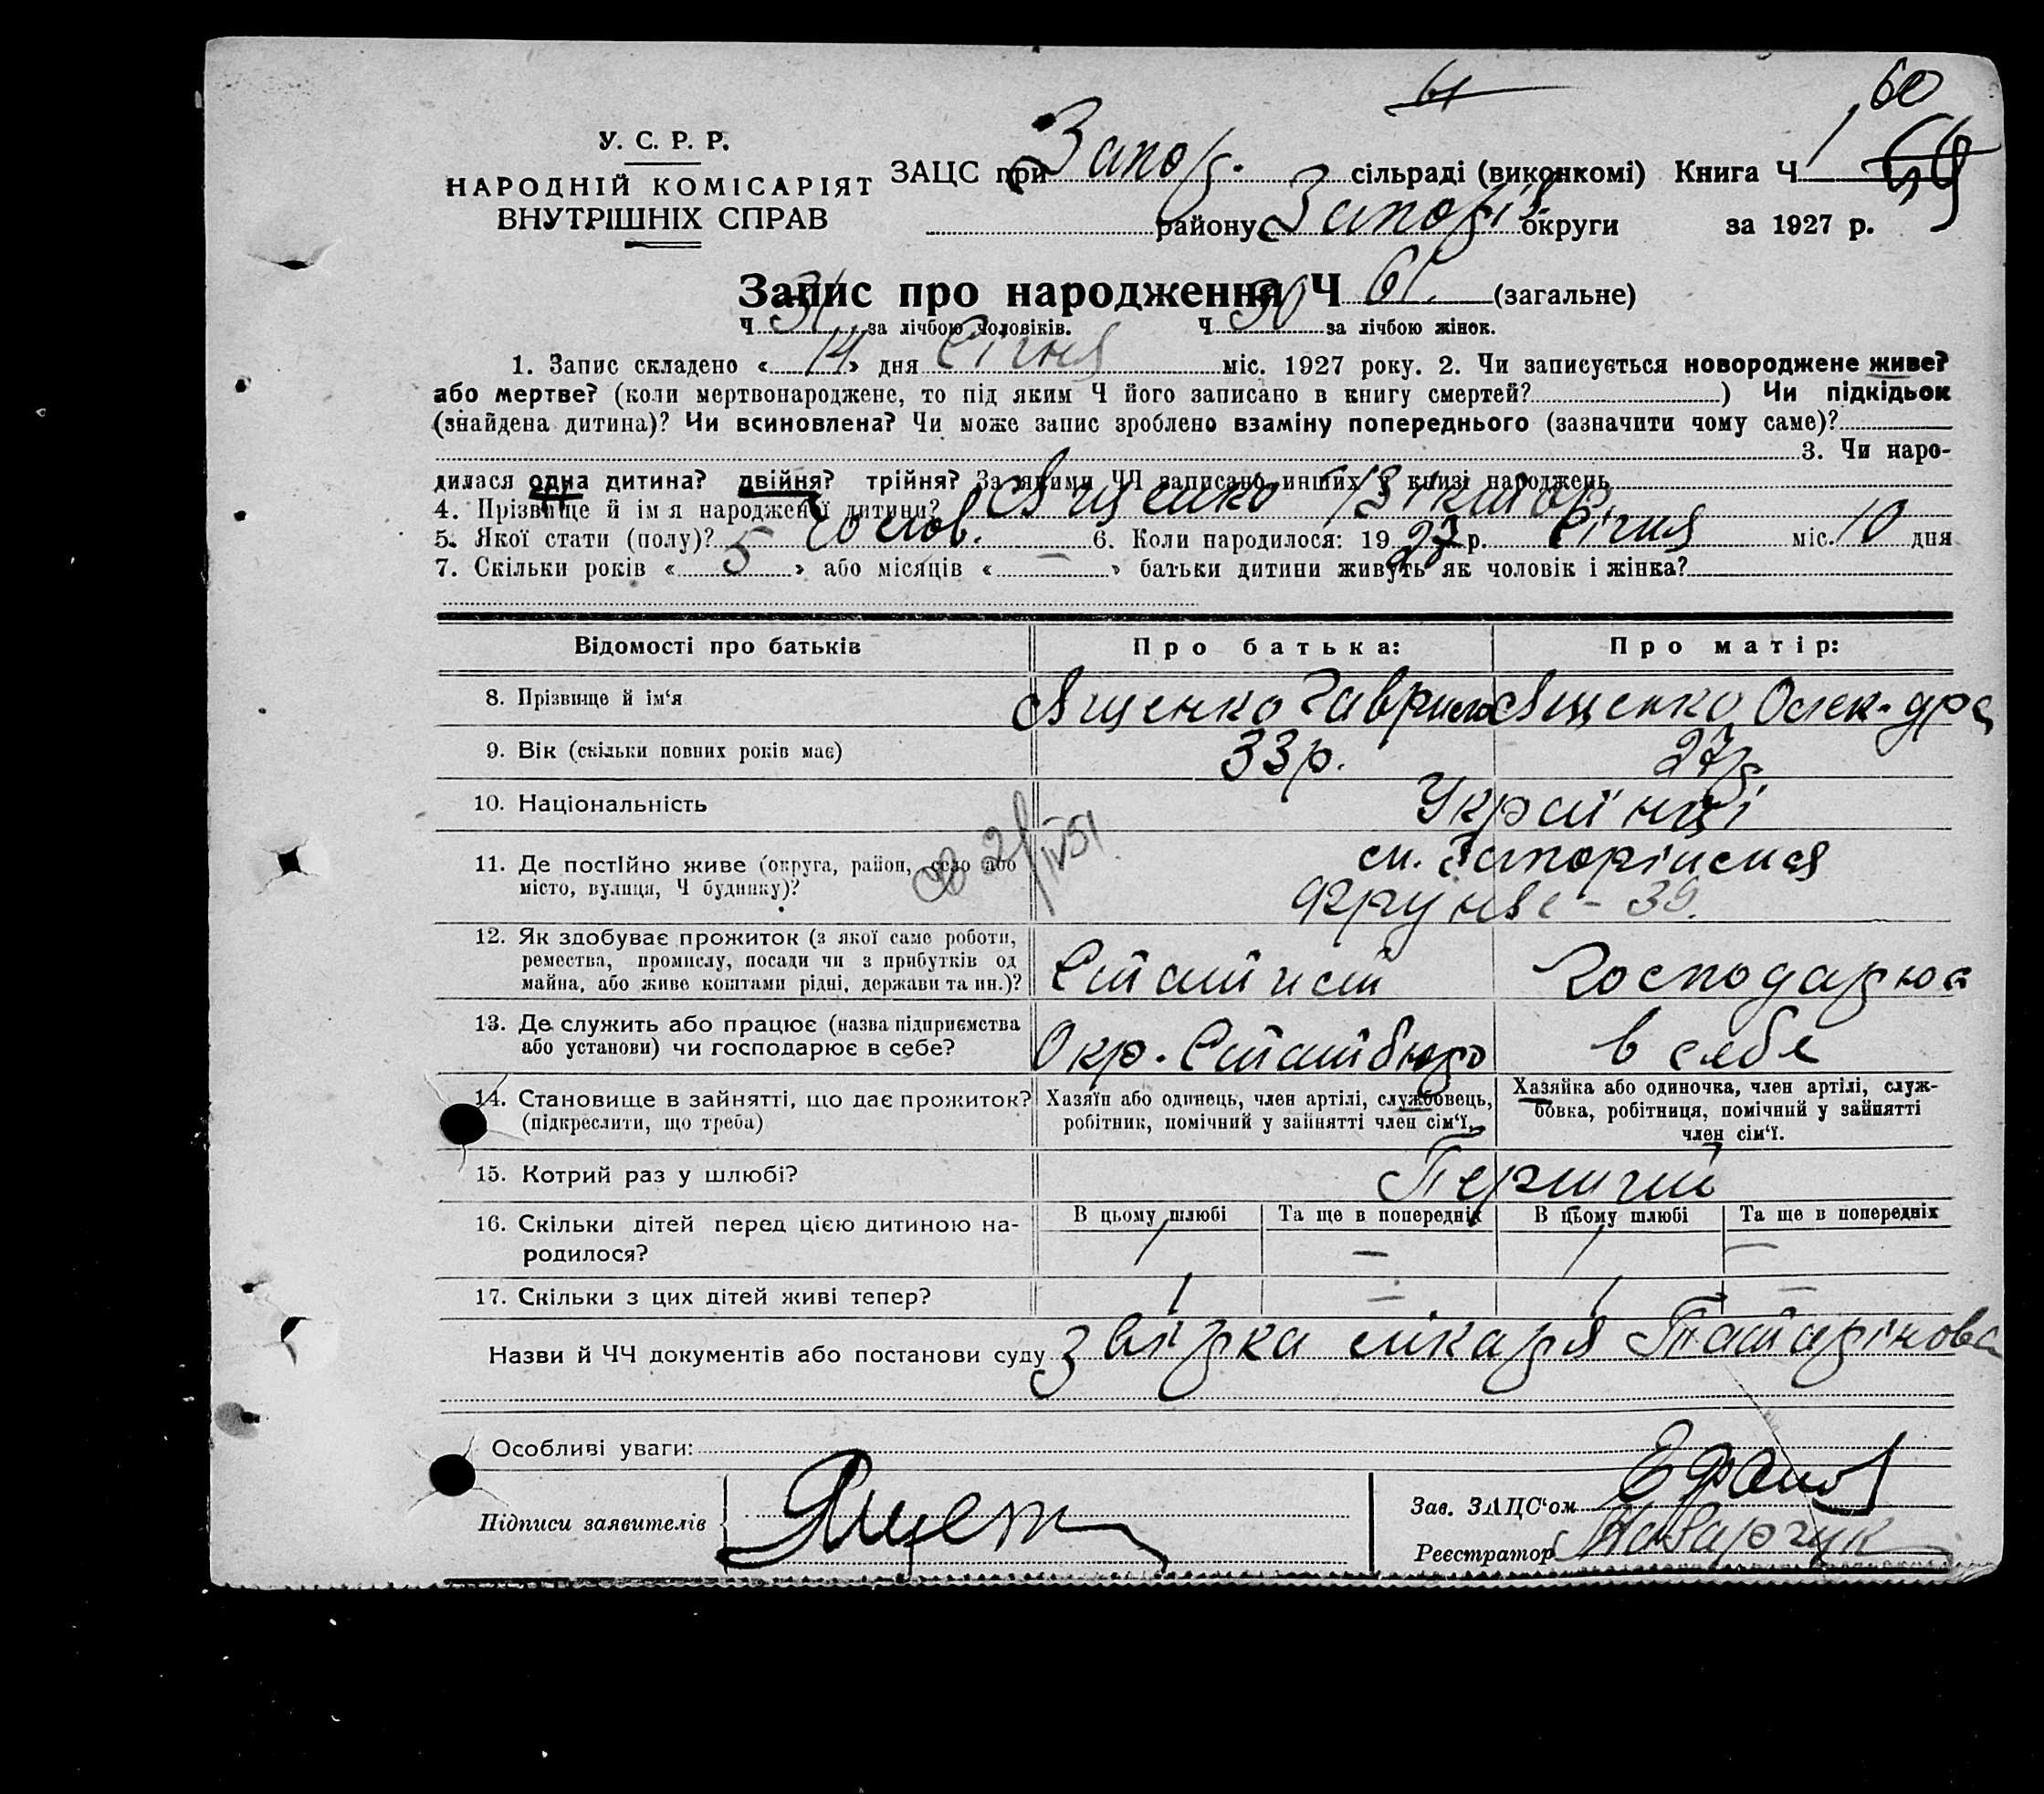 61
60
У. С. Р. Р.
НАРОДНІЙ КОМІСАРІЯТ
ВНУТРІШНІХ СПРАВ
ЗАЦС при Запор. сільраді (виконкомі) Книга Ч 1
району Запоріз. округи за 1927 р.
Запис про народження Ч 61 (загальне)
Ч 31 за лічбою чоловіків. Ч 30 за лічбою жінок.
1. Запис складено « 14 » дня Січня міс. 1927 року. 2. Чи записується новороджене живе?
або мертве? (коли мертвонароджене, то під яким Ч його записано в книгу смертей?) Чи підкідьок
(знайдена дитина)? Чи всиновлена? Чи може запис зроблено взаміну попереднього (зазначити чому саме)?
3. Чи наро-
дилася одна дитина? двійня? трійня? За якими ЧЧ записано инших у книзі народжень
4. Прізвище й ім я народженої дитини? Ященко Віктор
5. Якої стати (полу)? Чолов. 6. Коли народилося: 19 27 р. Січня міс. 10 дня
7. Скільки років « 5 » або місяців « — » батьки дитини живуть як чоловік і жінка?
Відомості про батьків Про батька: Про матір:
8. Прізвище й ім‘я Ященко Гаврило Ященко Олек-дра
9. Вік (скільки повних років має) 33 р. 27 р.
10. Національність Українці
11. Де постійно живе (округа, район, село або місто, вулиця, Ч будинку)? 21/IV 51 Фрунзе - 39.
12. Як здобуває прожиток (з якої саме роботи,
ремества, промислу, посади чи з прибутків од
майна, або живе коштами рідні, держави та ин.)? Статист Господарює
13. Де служить або працює (назва підприємства
або установи) чи господарює в себе? Окр. Статбюро в себе
14. Становище в зайнятті, що дає прожиток?
(підкреслити, що треба)
Хазяїн або одинець, член артілі, службовець,
робітник, помічний у зайнятті член сім‘ї.
Хазяйка або одиночка, член артілі, служ-
бовка, робітниця, помічний у зайнятті
член сім‘ї.
15. Котрий раз у шлюбі? Перший
16. Скільки дітей перед цією дитиною на-
родилося?
В цьому шлюбі Та ще в попередніх В цьому шлюбі Та ще в попередніх
1 — 1 —
17. Скільки з цих дітей живі тепер? 1 — 1 —
Назви й ЧЧ документів або постанови суду лікаря Татарінова
Особливі уваги:
Підписи заявителів
Зав. ЗАЦС‘ом
Реєстратор